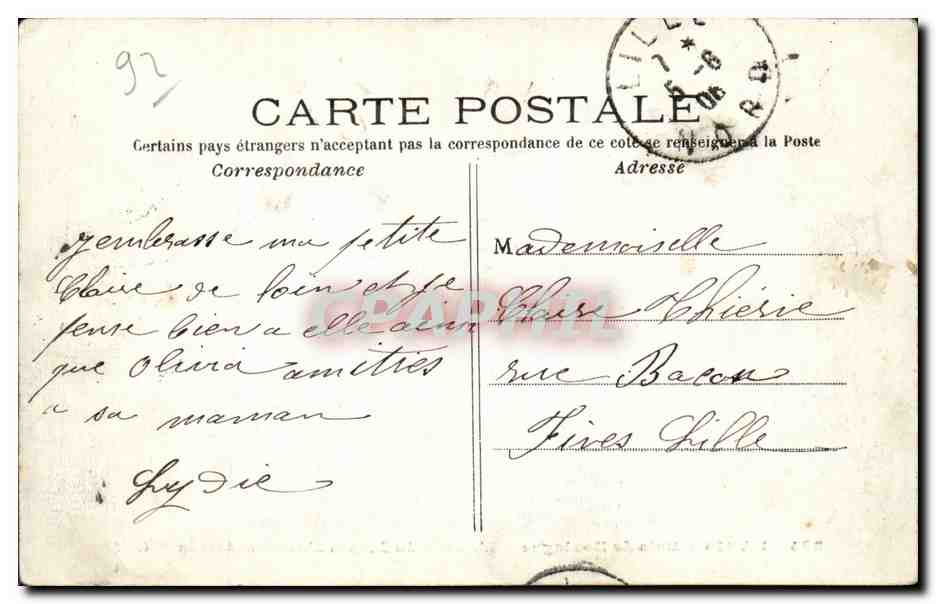 92
LILLE
7 *
5 - 6
06
NORD
CARTE POSTALE
Certains pays étrangers n'acceptant pas la correspondance de ce côté se renseigner à la Poste
Correspondance
Adresse
j'embrasse ma petite
Claire de loin et je
pense bien a elle ainsi
que Olivia amitiés
a sa maman
Lydie
Mademoiselle
Claire Thiérie
rue Bacon
Fives Lille
CPAPHIL